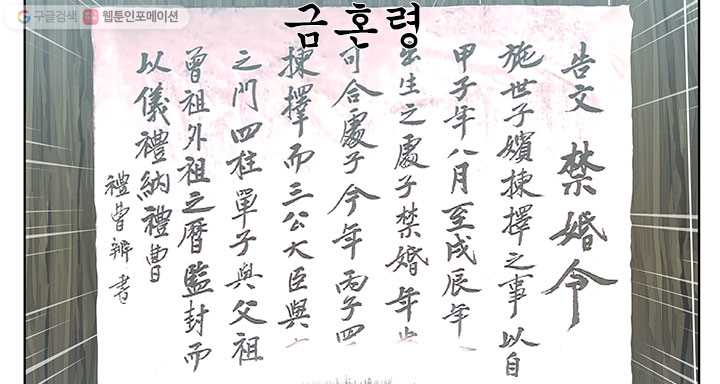 구글검색 웹툰인포메이션
금혼령
告文 禁婚令
施世子嬪揀擇之事以自
甲子年八月至戊辰年
出生之處子禁婚年
可合處子今年丙子四
揀擇而三公大臣與
之門四柱單子與父祖
曾祖外祖之曆監封而
以儀禮納禮曹
禮曹辨書